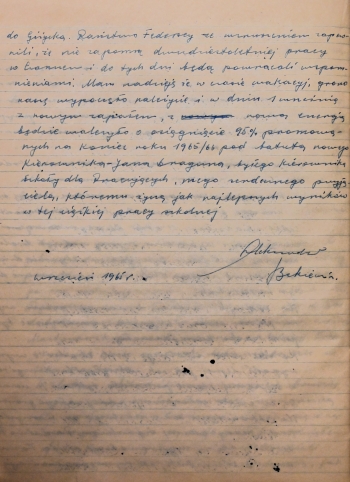 do Giżycka. Państwo Federscy ze wzruszeniem zapew-
nili, że nie zapomną dwudziestoletniej pracy
w i do tych dni będą powracali wspom-
nieniami. Mam nadzieję że w czasie wakacji, grono
nasze wypoczęło należycie i w dniu 1 września
z nowym zapałem, z nową energią
będzie walczyło o osiągnięcie 95% promowa-
nych na koniec roku 1965/66 pod batutą nowego
kierownika - Jana Draguna, byłego kierownika
szkoły dla Pracujących, mego serdecznego przyja-
ciela, któremu życzę jak najlepszych wyników
w tej ciężkiej pracy szkolnej
Aleksander
wrzesień 1965 r.